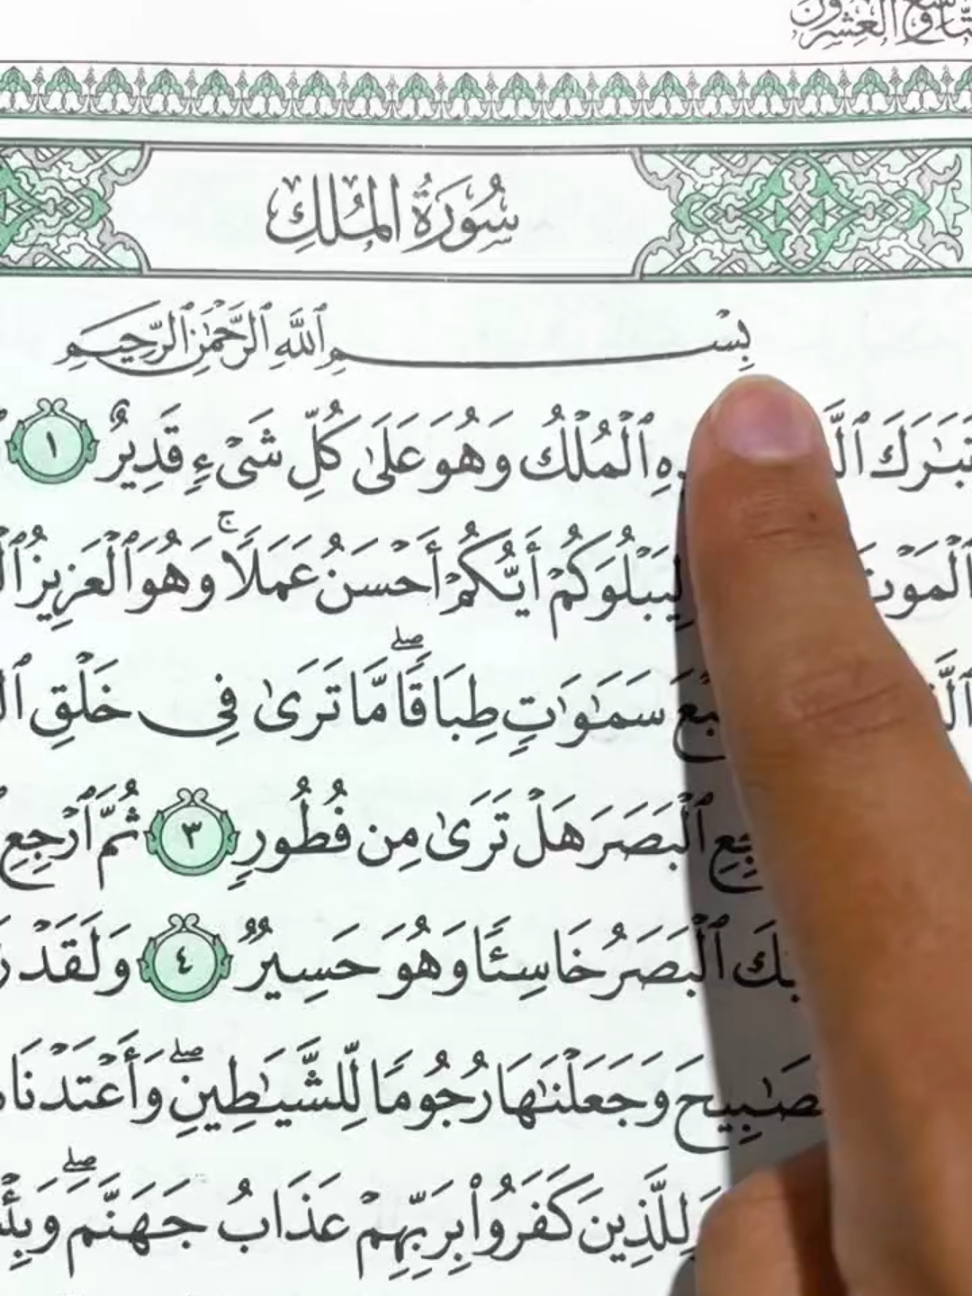 التاسع العشرون
سُورَةُ المُلْكِ
بِسْمِ ٱللَّهِ ٱلرَّحْمَٰنِ ٱلرَّحِيمِ
تَبَٰرَكَ ٱلْمُلْكُ وَهُوَ عَلَىٰ كُلِّ شَىْءٍ قَدِيرٌ ١
ٱلْمَوْتَ لِيَبْلُوَكُمْ أَيُّكُمْ أَحْسَنُ عَمَلًا ۚ وَهُوَ ٱلْعَزِيزُ
سَمَٰوَٰتٍ طِبَاقًا ۖ مَّا تَرَىٰ فِى خَلْقِ
ٱلْبَصَرَ هَلْ تَرَىٰ مِن فُطُورٍ ٣ ثُمَّ ٱرْجِعِ
ٱلْبَصَرُ خَاسِئًا وَهُوَ حَسِيرٌ ٤ وَلَقَدْ
وَجَعَلْنَٰهَا رُجُومًا لِّلشَّيَٰطِينِ ۖ وَأَعْتَدْنَا
لِلَّذِينَ كَفَرُوا۟ بِرَبِّهِمْ عَذَابُ جَهَنَّمَ ۖ